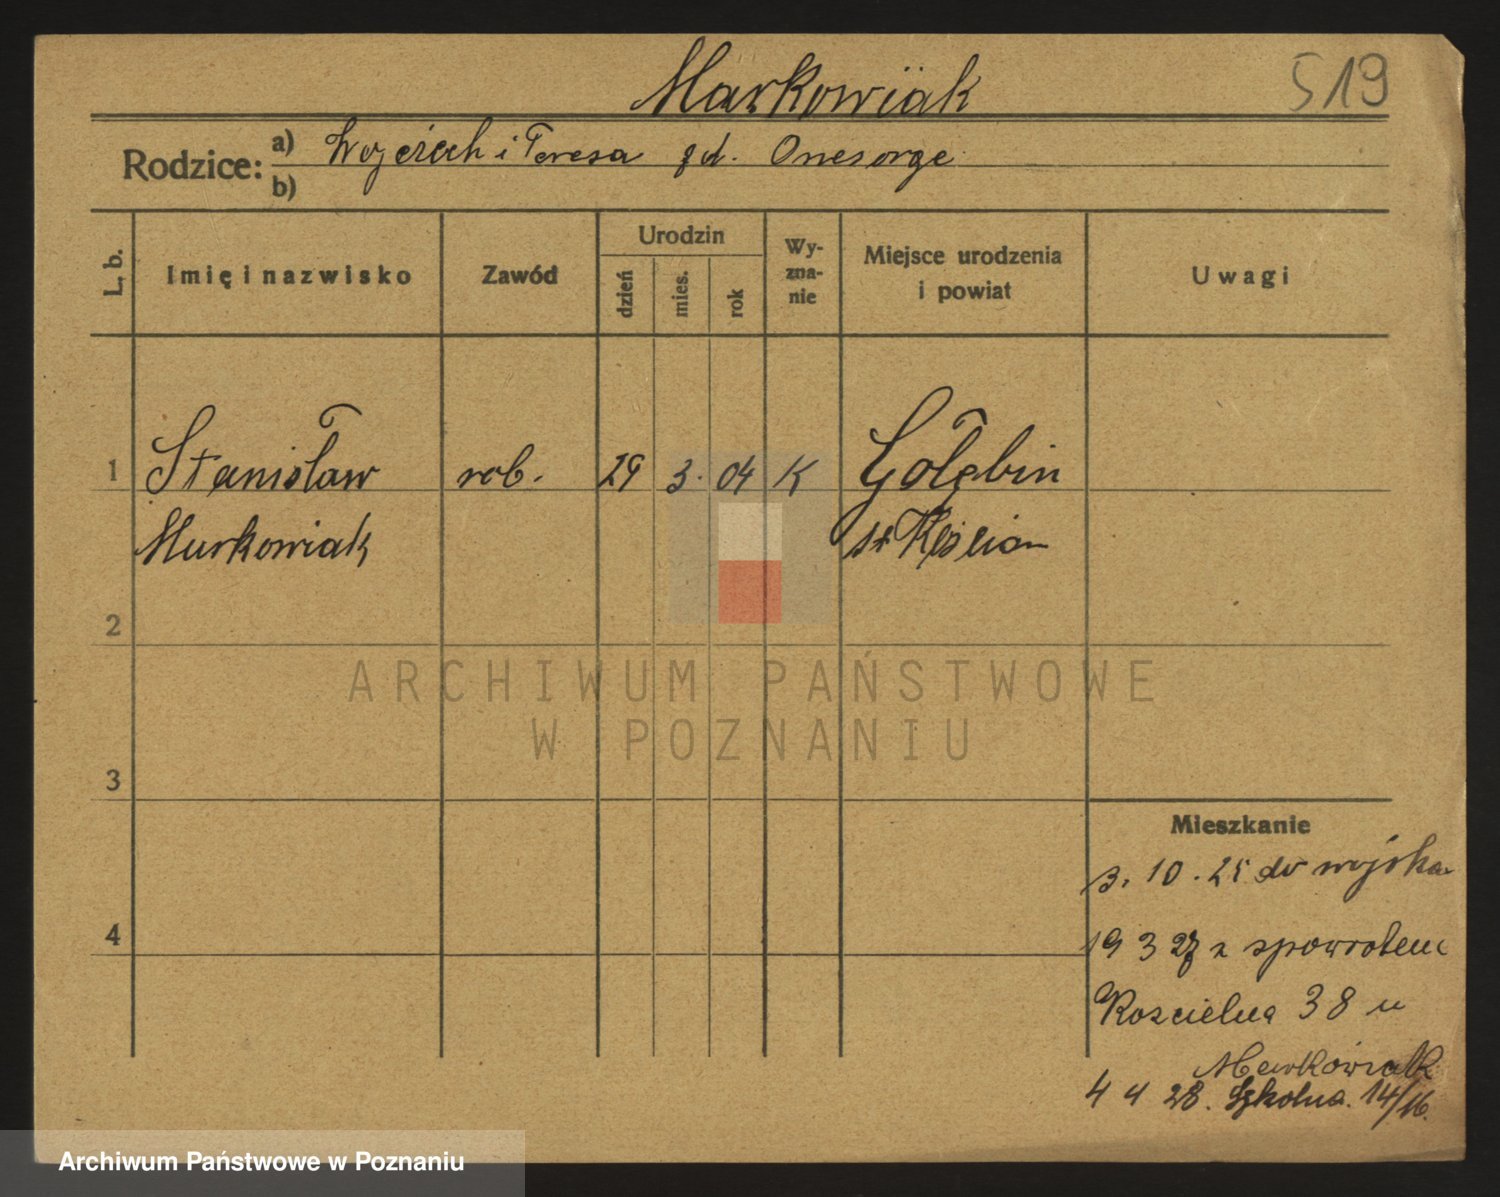 Markowiak
519
Rodzice: a) Wojciech i Teresa zd. Onesorge
b)
L. b.
Imię i nazwisko
Zawód
Urodzin
dzień
mies.
rok
Wy-
zna-
nie
Miejsce urodzenia
i powiat
Uwagi
1 Stanisław rob. 29 3. 04 K Gołębin
Markowiak st Kościan
2
3
4
Mieszkanie
3. 10. 25 do wojska
19 3 27 z spowrotem
Koscielna 38 u
Markowiak
4 4 28. Szkolna. 14/16.
ARCHIWUM PAŃSTWOWE
W POZNANIU
Archiwum Państwowe w Poznaniu